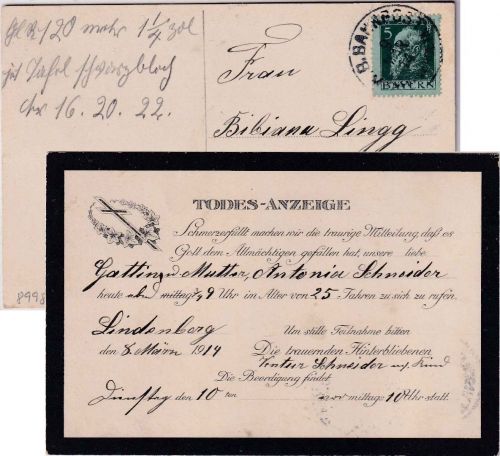 20 mehr 1 1/4 zol
Tafel schwarzblech
Nr 16. 20. 22.
Frau
Bibiana Lingg
B. BAHNPOST
5
BAYERN
8998
TODES-ANZEIGE
Schmerzerfüllt machen wir die traurige Mitteilung, daß es
Gott dem Allmächtigen gefallen hat, unsere liebe
Gattin u. Mutter, Antonia Schneider
heute abend mittag 1/4 9 Uhr im Alter von 25 Jahren zu sich zu rufen.
Lindenberg
den 8. März 1914
Um stille Teilnahme bitten
Die trauernden Hinterbliebenen
Schneider u. Kind
Die Beerdigung findet
Dienstag den 10 ten vor mittags 10 Uhr statt.